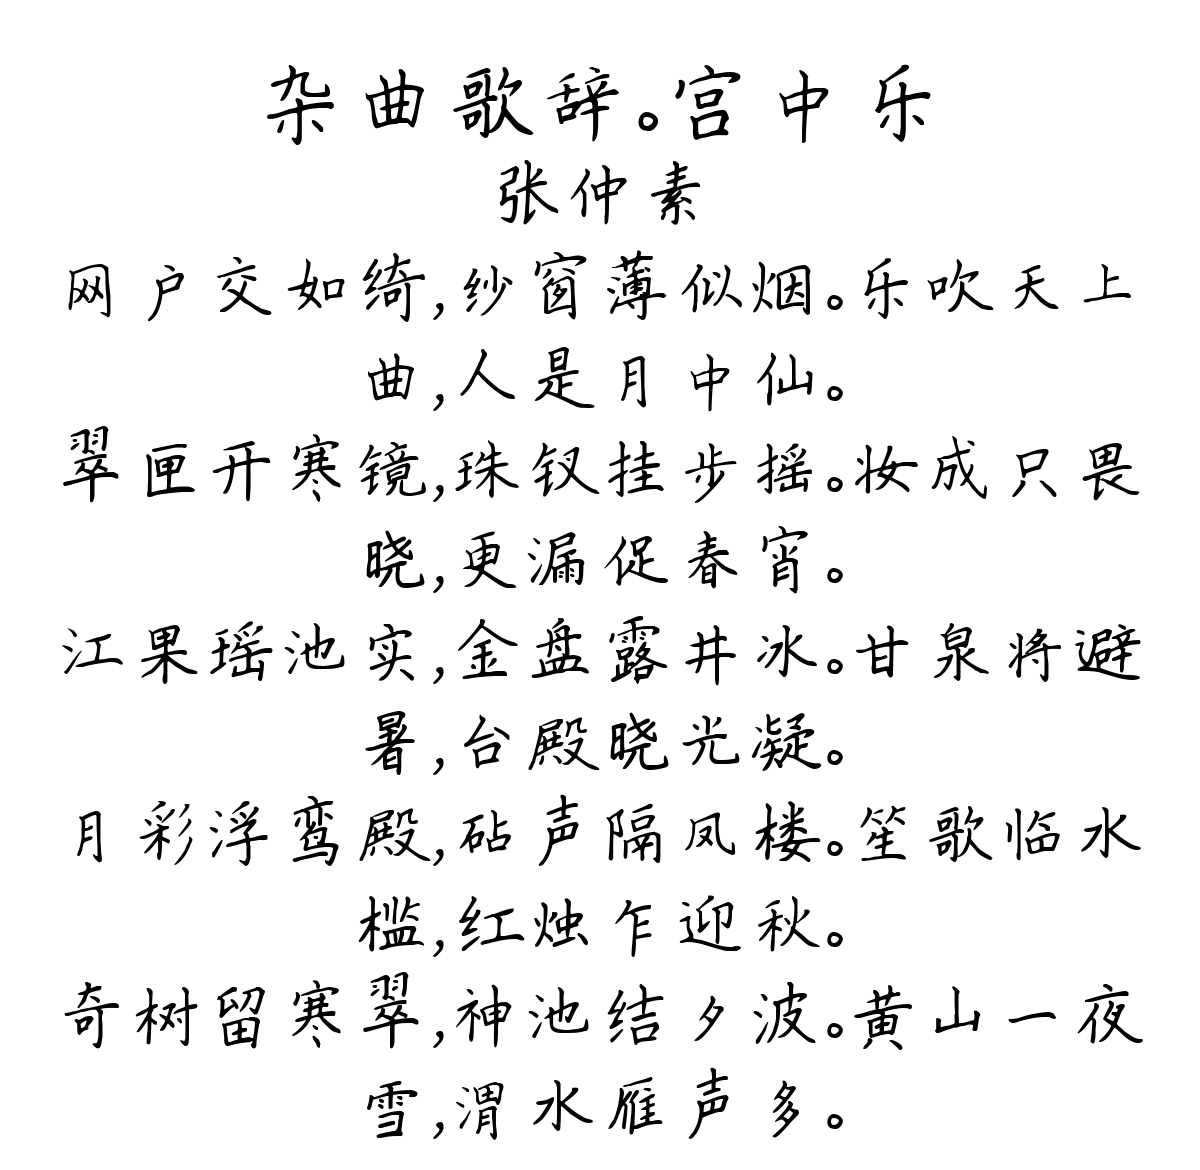 杂曲歌辞。宫中乐
张仲素
网户交如绮,纱窗薄似烟。乐吹天上
曲,人是月中仙。
翠匣开寒镜,珠钗挂步摇。妆成只畏
晓,更漏促春宵。
江果瑶池实,金盘露井冰。甘泉将避
暑,台殿晓光凝。
月彩浮鸾殿,砧声隔凤楼。笙歌临水
槛,红烛乍迎秋。
奇树留寒翠,神池结夕波。黄山一夜
雪,渭水雁声多。